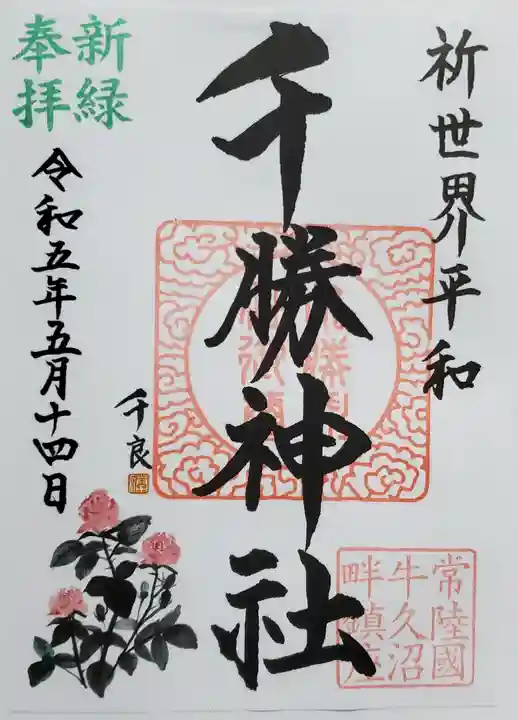 祈世界平和
千勝神社
常陸國
牛久沼
畔鎮座
新緑
奉拝
令和五年五月十四日
千良